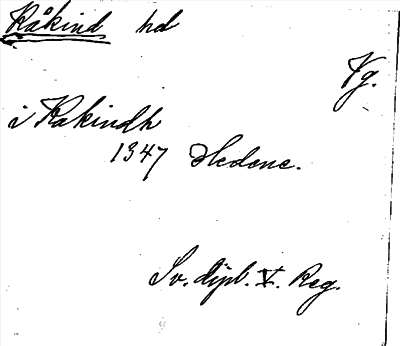 Råkind hd
Vg.
i Rakindh
1347 Hedene.
Sv. dipl. V. Reg.